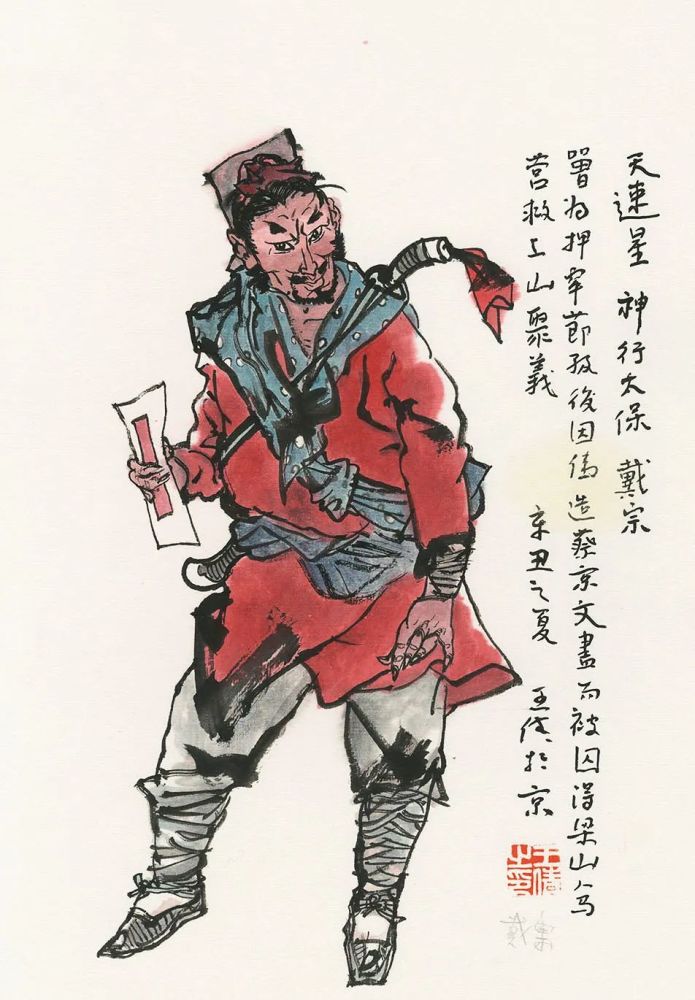 天速星 神行太保 戴宗
曾为押牢節级後因偽造蔡京文書而被囚得梁山人马
营救上山聚義 辛丑之夏 王於京